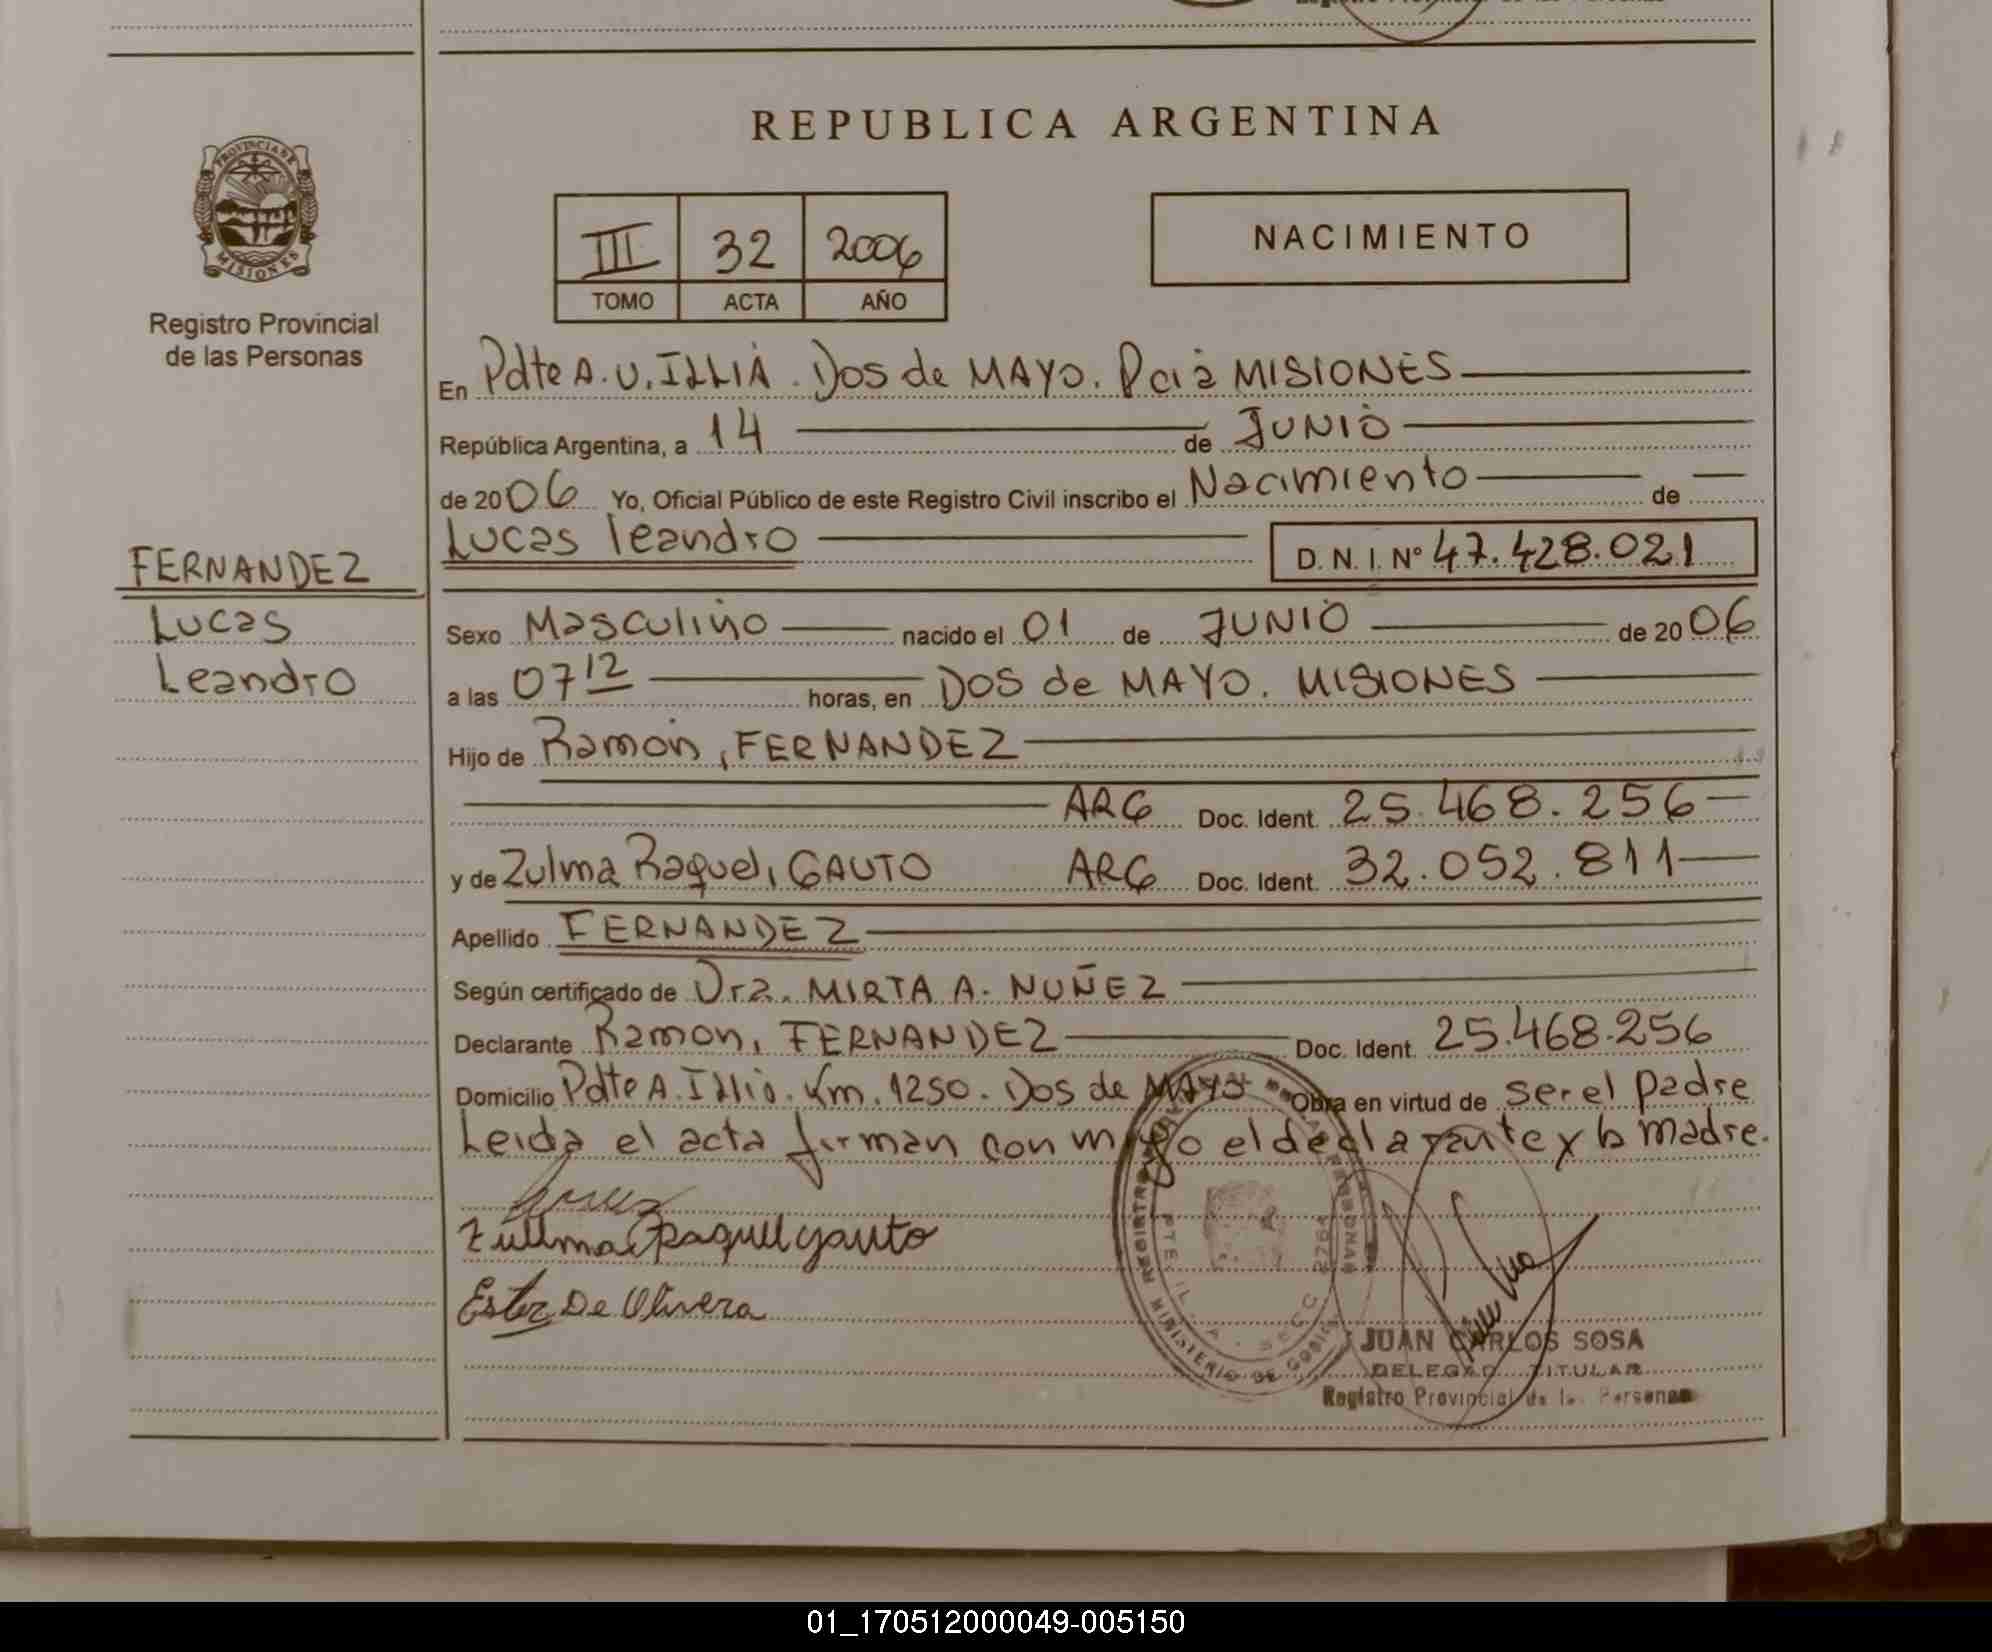 REPUBLICA ARGENTINA
PROVINCIA DE
MISIONES
Registro Provincial
de las Personas
III 32 2006
TOMO ACTA AÑO
NACIMIENTO
En Pdte A. U. ILLIA. Dos de MAYO. Pcia MISIONES
República Argentina, a 14 de JUNIO
de 2006 Yo, Oficial Público de este Registro Civil inscribo el Nacimiento de
Lucas Leandro D. N. I. N° 47.428.021
FERNANDEZ
Lucas
Leandro
Sexo Masculino nacido el 01 de JUNIO de 2006
a las 07 12 horas, en DOS de MAYO. MISIONES
Hijo de Ramón, FERNANDEZ
ARG Doc. Ident. 25.468.256
y de Zulma Raquel, GAUTO ARG Doc. Ident. 32.052.811
Apellido FERNANDEZ
Según certificado de Dra. MIRTA A. NUÑEZ
Declarante Ramon, FERNANDEZ Doc. Ident. 25.468.256
Domicilio Pdte A. Illia. Km. 1250. Dos de MAYO Obra en virtud de ser el padre
Leida el acta firman con migo el declarante y la madre.
Zullma Raquel gauto
Ester De Olivera
JUAN CARLOS SOSA
DELEGADO TITULAR
Registro Provincial de las Personas
01_170512000049-005150